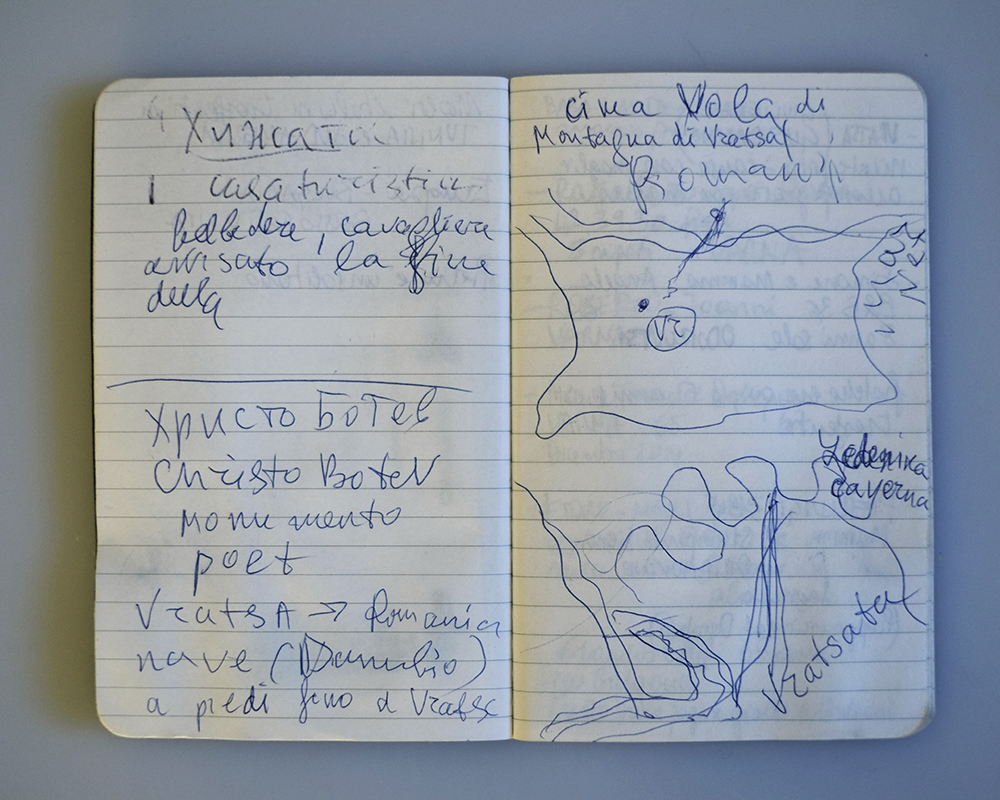 Хижата
1 casa turistica
belbedere, cavagliere
avvisato la fine
della
Христо Ботев
Christo Botev
monumento
poet
VratsA → Romania
nave (Danubio)
a piedi fino a Vratsa
cima Vola di
Montagna di Vratsa
Romania
Vr
Ledenika
caverna
Vratsata